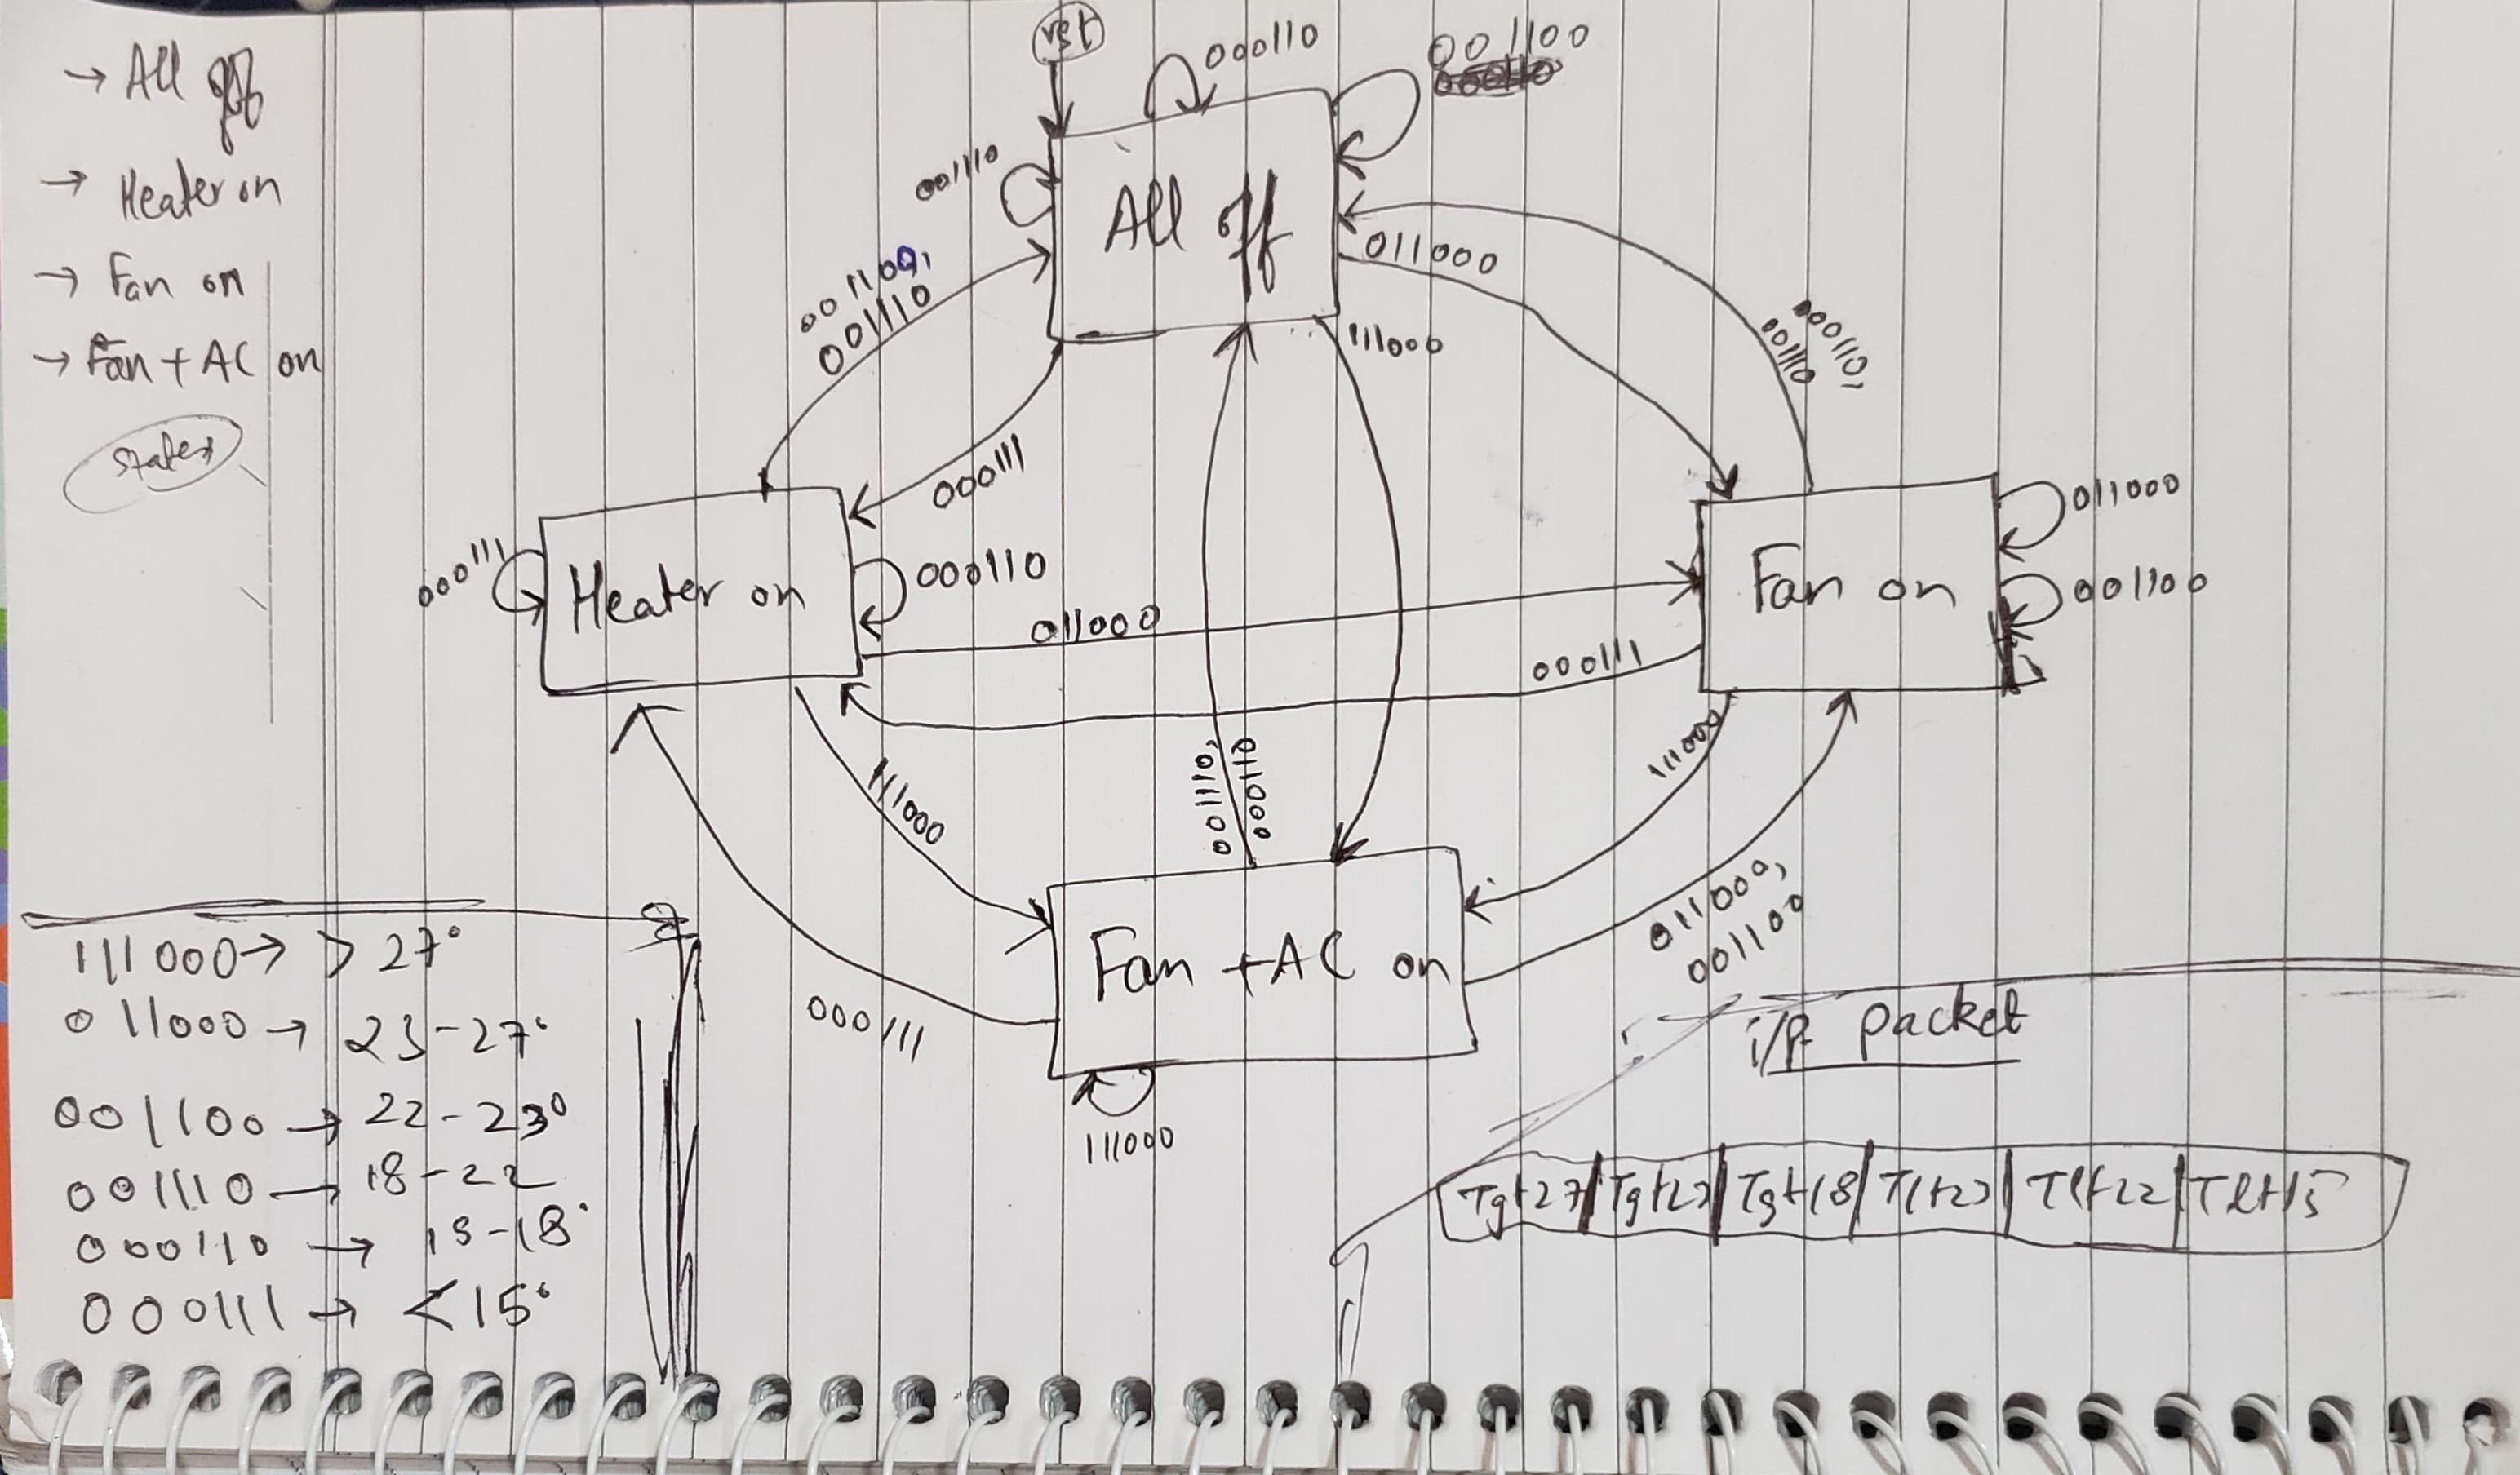 → All off
→ Heater on
→ Fan on
→ Fan + AC on
states
rst
000110
001100
001110
All off
011000
111000
001100,
001110
000111
000110,
001110
000111
Heater on
000110
011000
000111
Fan on
011000
001100
111000
001110,
000110
111000
011000,
001100
Fan + AC on
000111
111000
111000 → > 27°
011000 → 23-27°
001100 → 22-23°
001110 → 18-22
000110 → 15-18°
000111 → < 15°
i/p packet
Tgt27 Tgt23 Tgt18 Tlt23 Tlt22 Tlt15